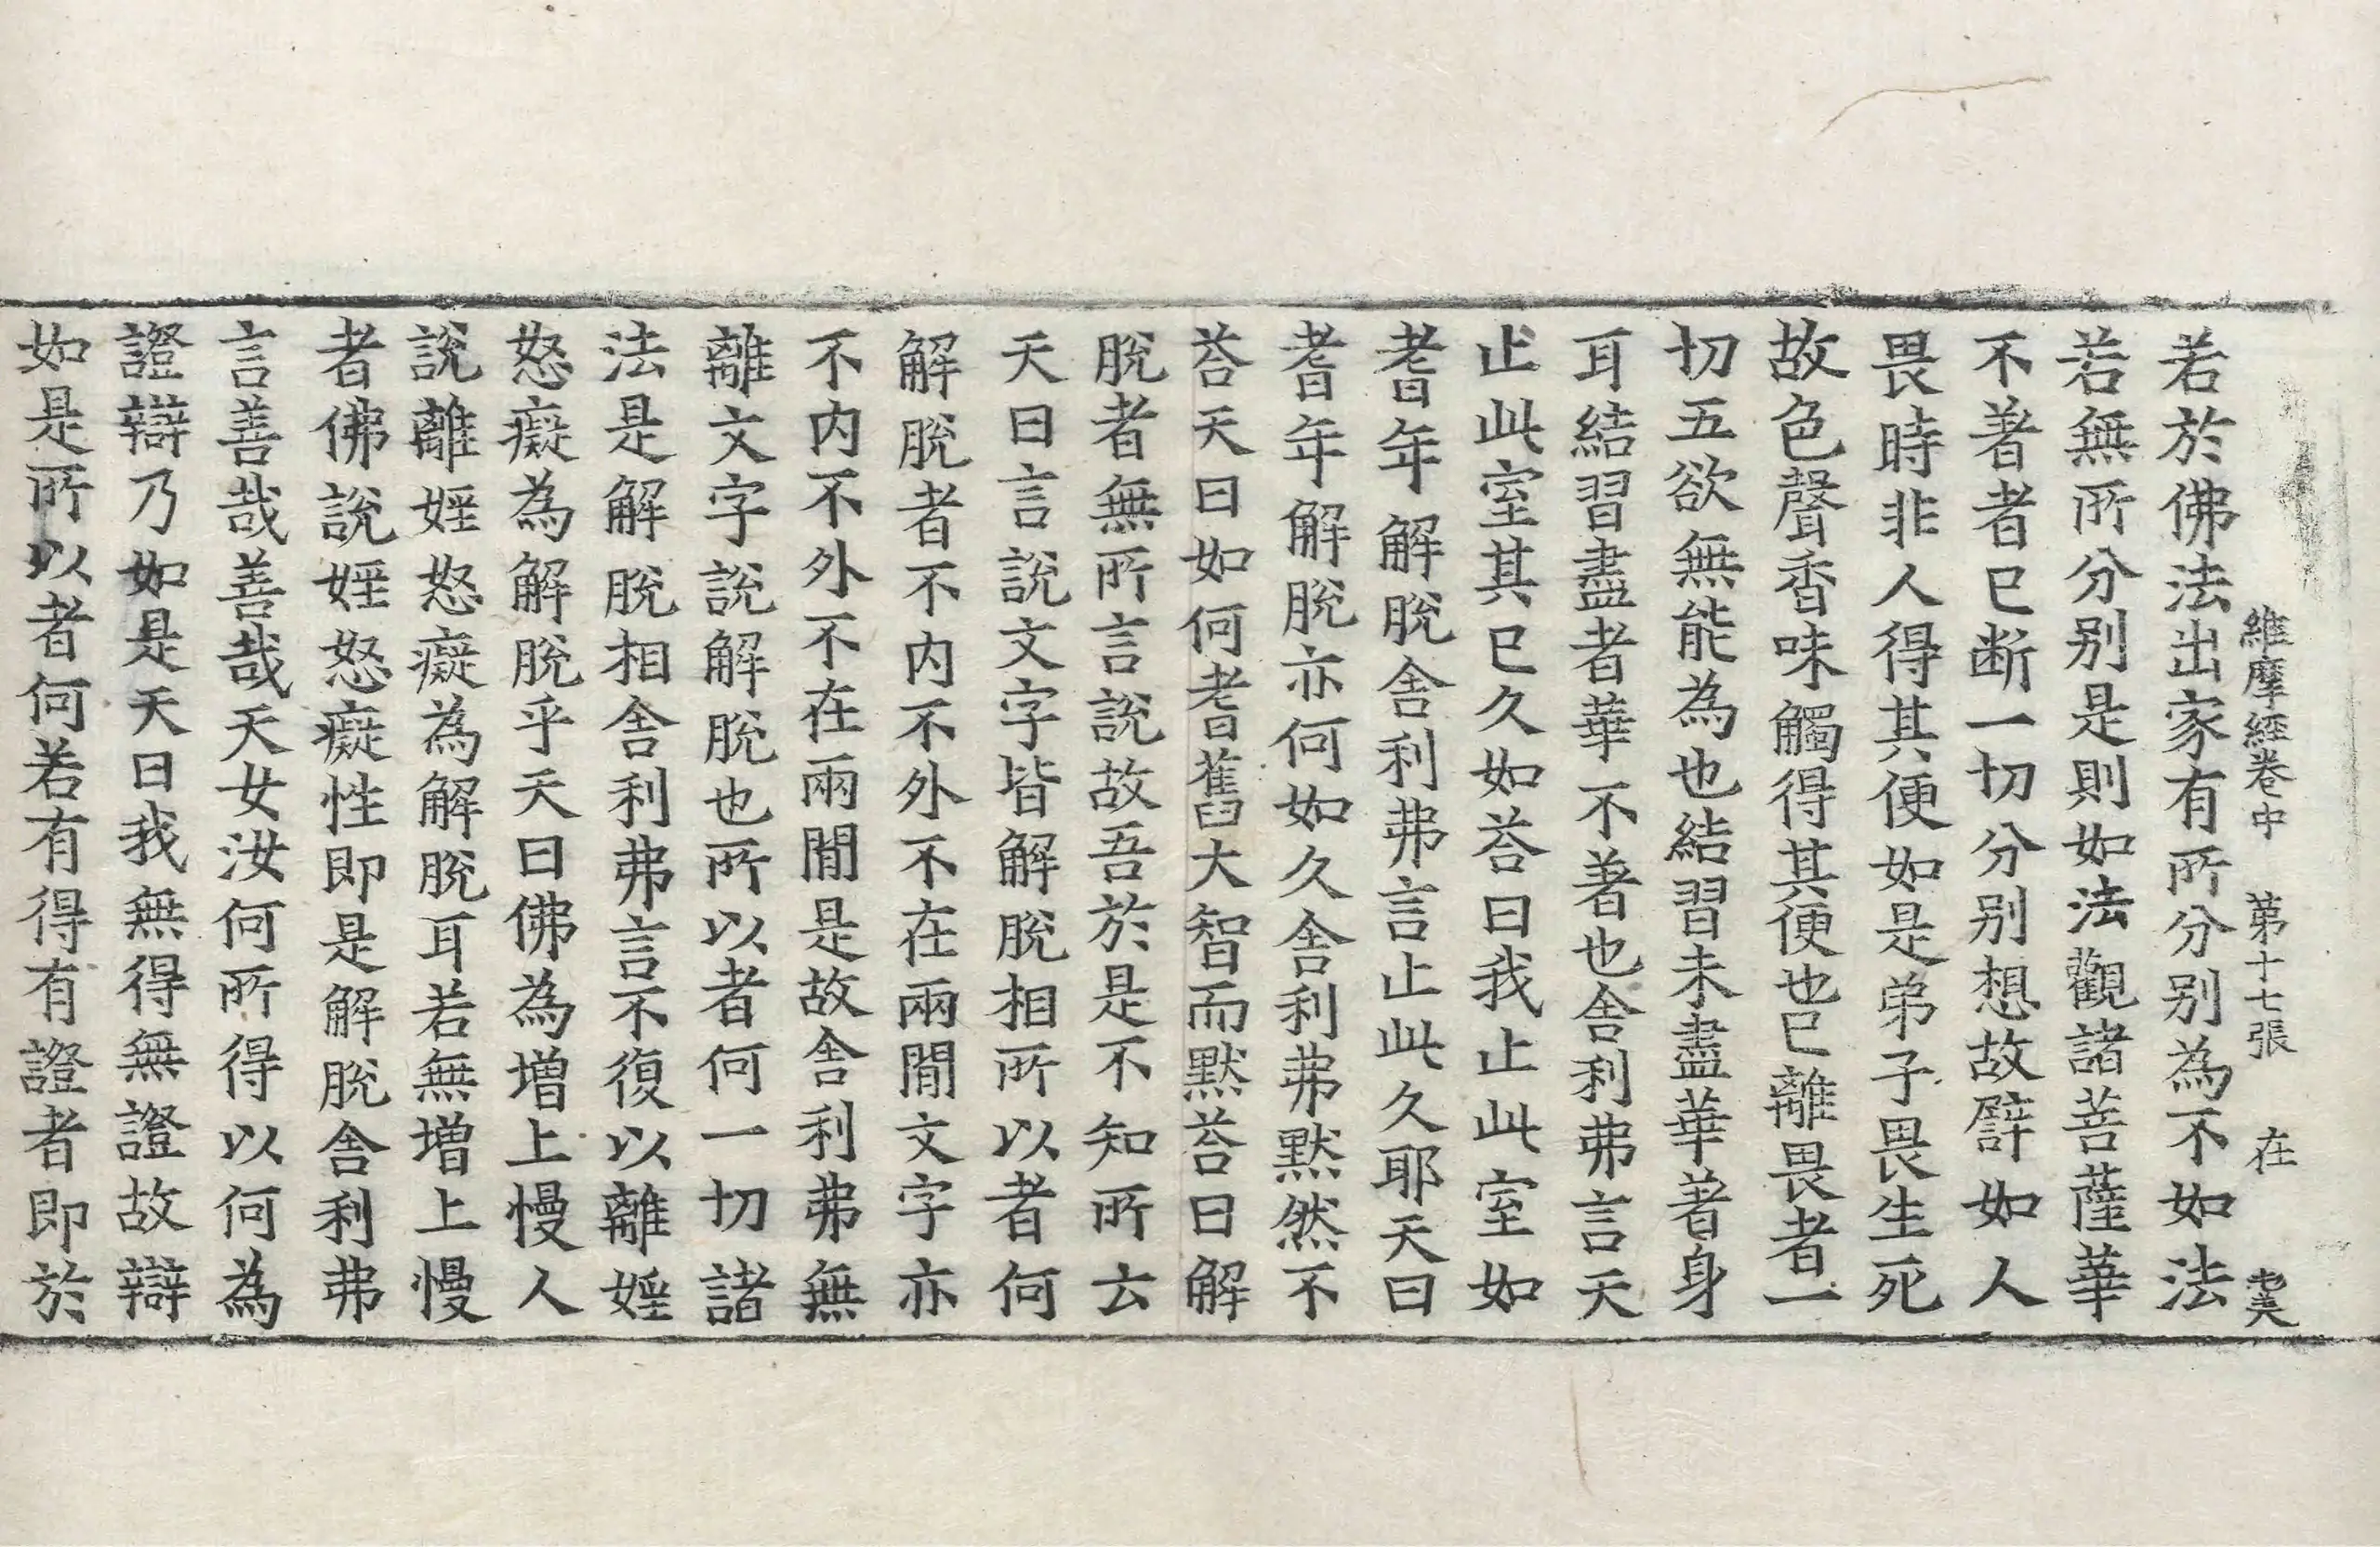 維摩經卷中 第十七張 在
若於佛法出家有所分别為不如法
若無所分别是則如法觀諸菩薩華
不著者已断一切分别想故譬如人
畏時非人得其便如是弟子畏生死
故色聲香味觸得其便也已離畏者一
切五欲無能為也結習未盡華著身
耳結習盡者華不著也舍利弗言天
止此室其已久如荅曰我止此室如
耆年解脫舍利弗言止此久耶天曰
耆年解脫亦何如久舍利弗默然不
荅天曰如何耆舊大智而默荅曰解
脫者無所言說故吾於是不知所云
天曰言說文字皆解脫相所以者何
解脫者不内不外不在兩閒文字亦
不内不外不在兩閒是故舍利弗無
離文字說解脫也所以者何一切諸
法是解脫相舍利弗言不復以離婬
怒癡為解脫乎天曰佛為增上慢人
說離婬怒癡為解脫耳若無增上慢
者佛說婬怒癡性即是解脫舍利弗
言善哉善哉天女汝何所得以何為
證辯乃如是天曰我無得無證故辯
如是所以者何若有得有證者即於